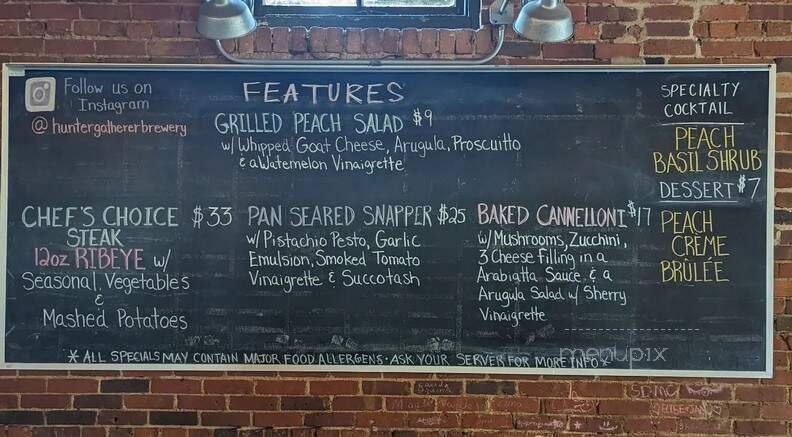 Follow us on
Instagram
@huntergathererbrewery
FEATURES
GRILLED PEACH SALAD $9
w/ Whipped Goat Cheese, Arugula, Prosciutto
& a Watemelon Vinaigrette
SPECIALTY
COCKTAIL
PEACH
BASIL SHRUB
DESSERT $7
PEACH
CRÈME
BRÛLÉE
CHEF'S CHOICE $33
STEAK
12oz RIBEYE w/
Seasonal Vegetables
&
Mashed Potatoes
PAN SEARED SNAPPER $25
w/ Pistachio Pesto, Garlic
Emulsion, Smoked Tomato
Vinaigrette & Succotash
BAKED CANNELLONI $17
w/ Mushrooms, Zucchini,
3 Cheese filling in a
Arabiatta Sauce & a
Arugula Salad w/ Sherry
Vinaigrette
* ALL SPECIALS MAY CONTAIN MAJOR FOOD ALLERGENS · ASK YOUR SERVER FOR MORE INFO *
menupix